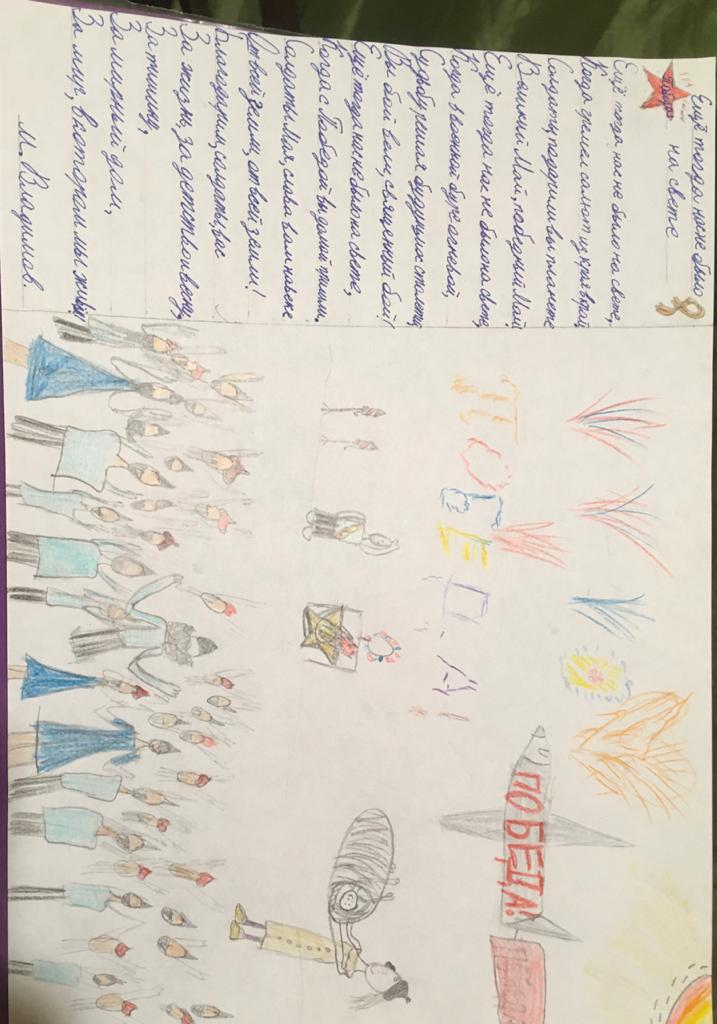 Ещё тогда нас не было
на свете
Ещё тогда нас не было на свете,
Когда гремел салют из края в край
Солдаты, подарили вы планете
Великий Май, победный Май!
Ещё тогда нас не было на свете,
Когда в военной буре огневой,
Судьбу решая будущих столетий,
Вы бой вели, священный бой!
Ещё тогда нас не было на свете,
Когда с Победой вы домой пришли.
Солдаты Мая, слава вам навеки
От всей земли, от всей земли!
Благодарим, солдаты, вас
За жизнь, за детство и весну,
За тишину,
За мирный дом,
За мир, в котором мы живём!
М. Владимов.
ПОБЕДА!
ПОБЕДА!